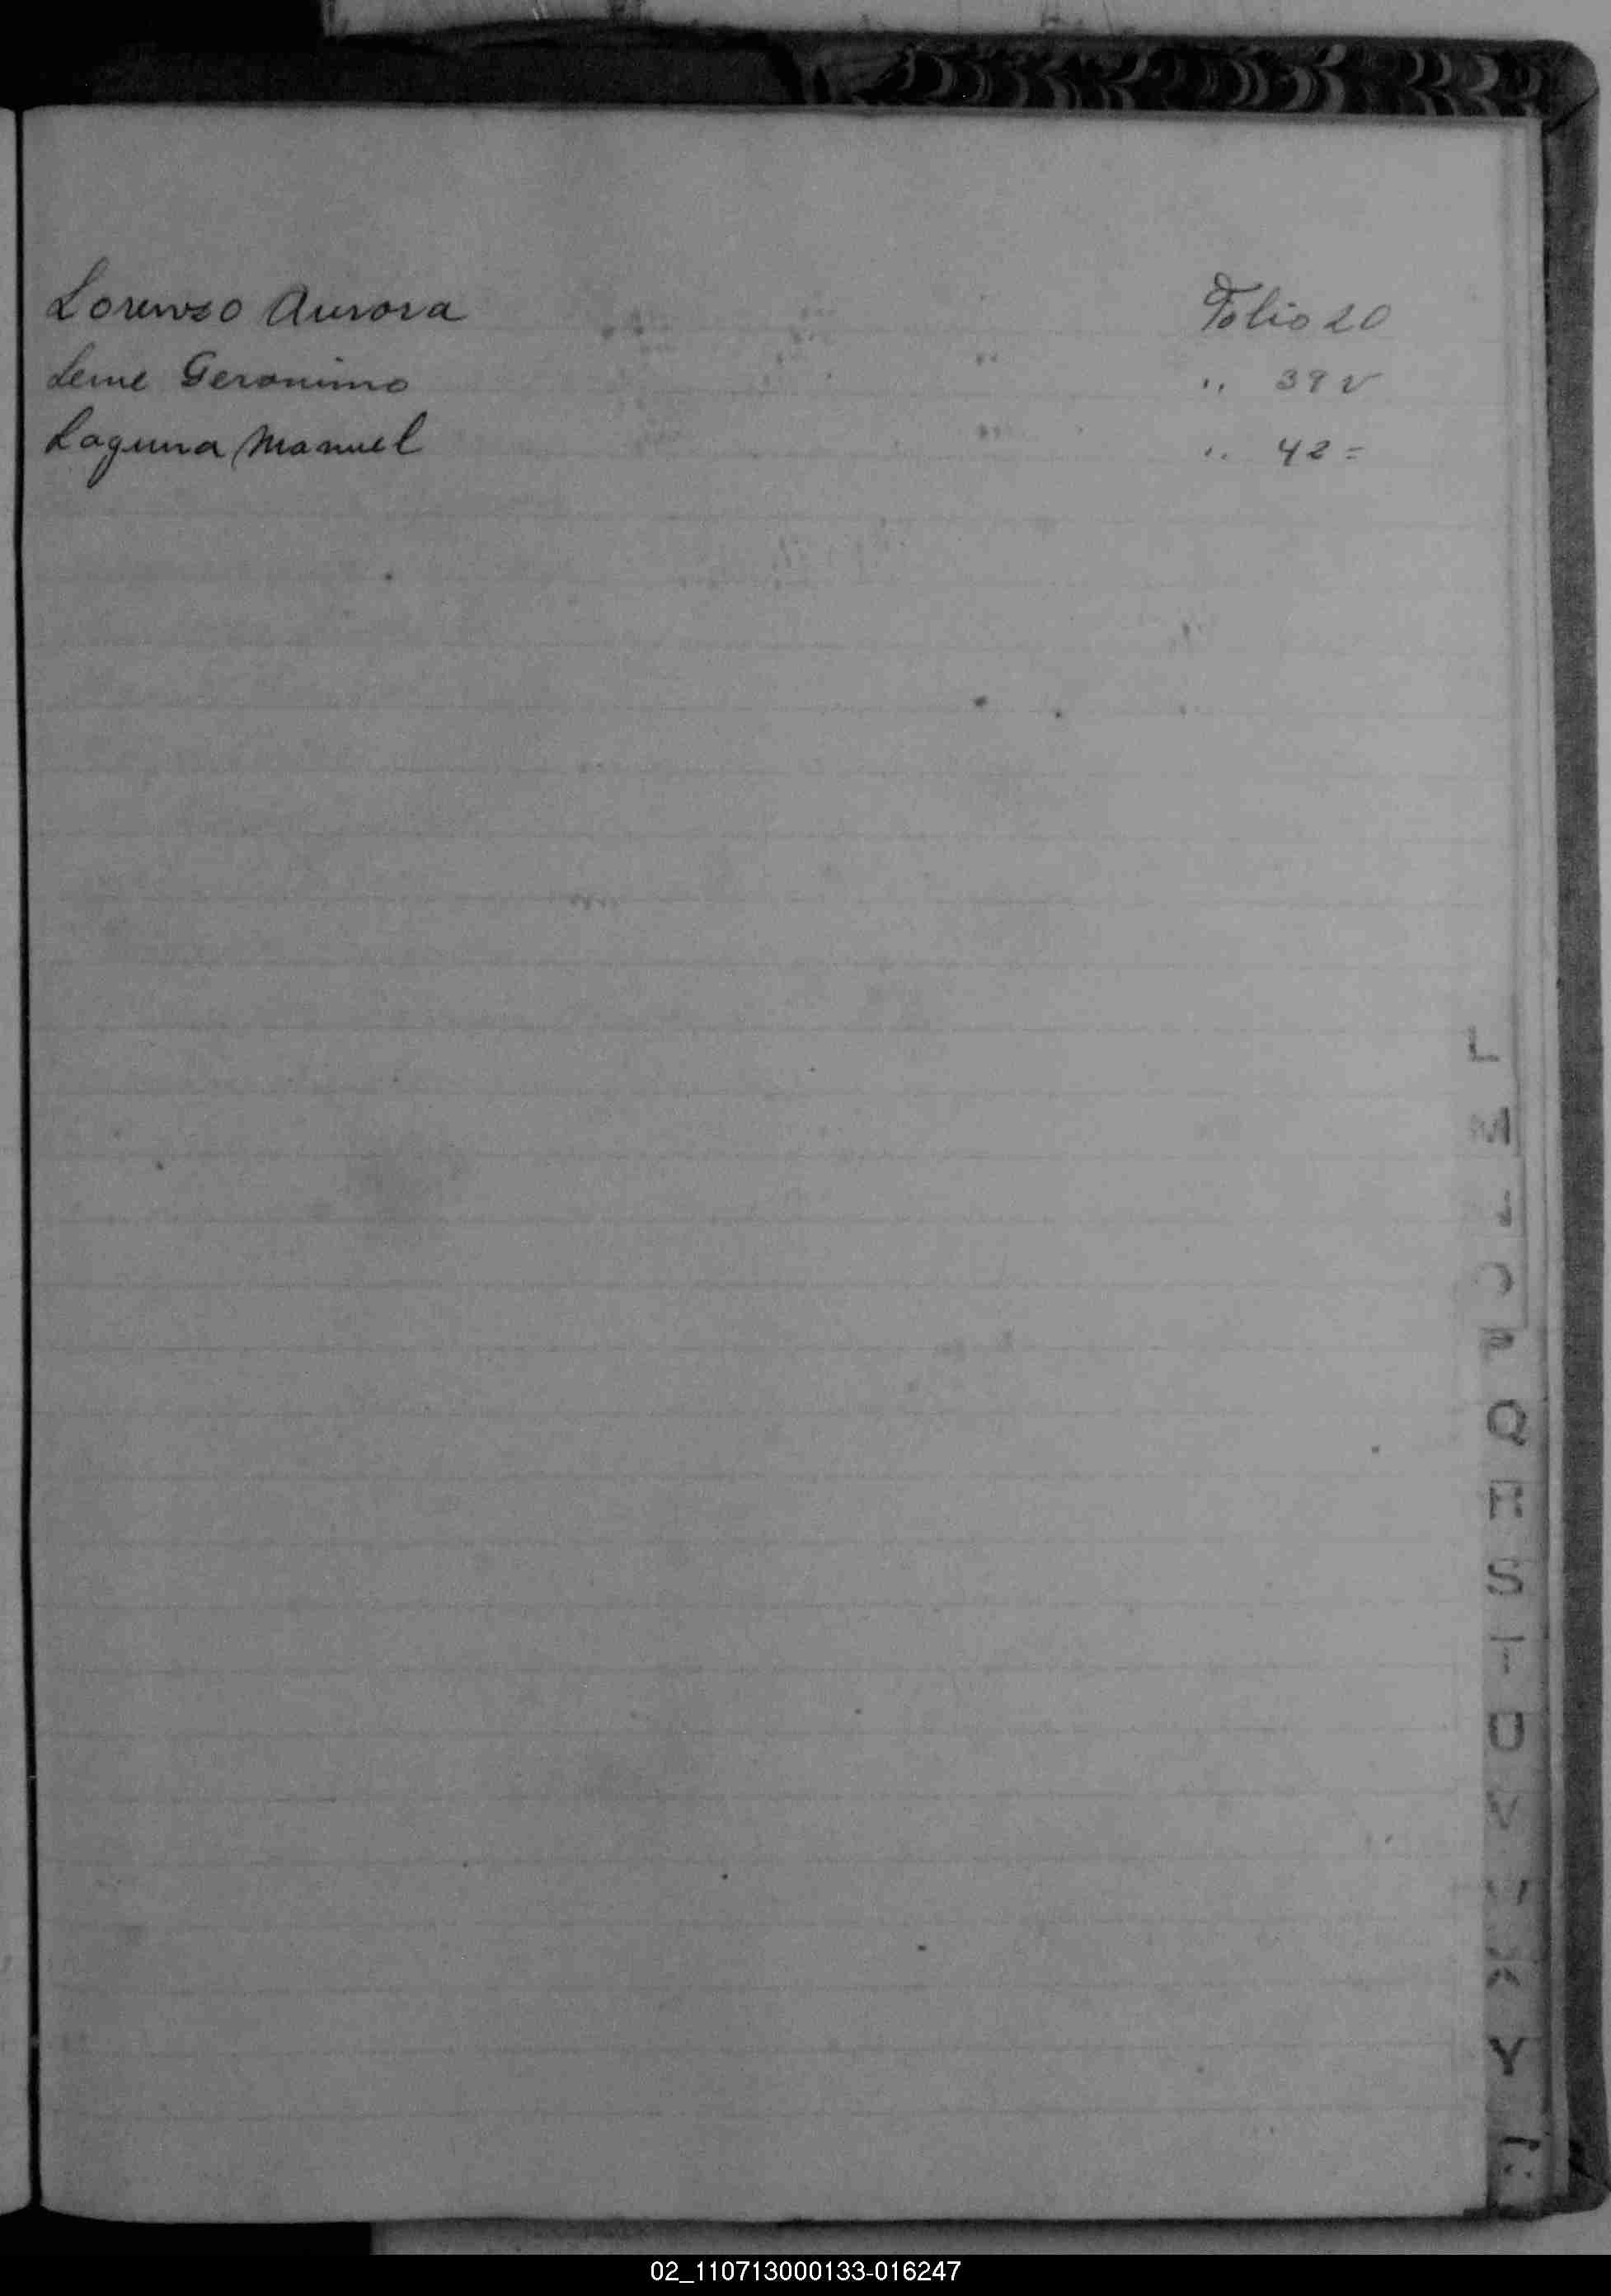 Lorenzo Aurora Folio 20
Leme Geronimo " 39 v
Laguna Manuel " 42 =
L
M
O
P
Q
R
S
T
U
V
X
Y
02_110713000133-016247